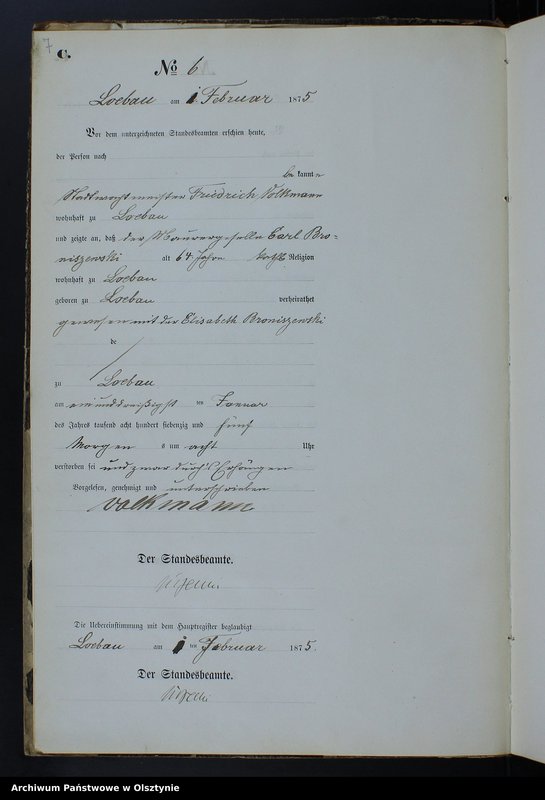 7
C.
No 6
Loebau am 1. Februar 1875.
Vor dem unterzeichneten Standesbeamten erschien heute,
der Person nach
be kannte
Stadtwachtmeister Friedrich Volkmann
wohnhaft zu Loebau
und zeigte an, daß der Maurergeselle Carl Bro=
niszewski alt 64 Jahre kath. Religion
wohnhaft zu Loebau
geboren zu Loebau verheirathet
gewesen mit der Elisabeth Broniszewski
de
zu Loebau
am einunddreißigst ten Januar
des Jahres tausend acht hundert siebenzig und fünf
Morgen s um acht Uhr
verstorben sei und zwar durch's Erhängen
Vorgelesen, genehmigt und unterschrieben
Volkmann
Der Standesbeamte.
Die Uebereinstimmung mit dem Hauptregister beglaubigt
Loebau am 1 ten Februar 1875.
Der Standesbeamte.
Archiwum Państwowe w Olsztynie